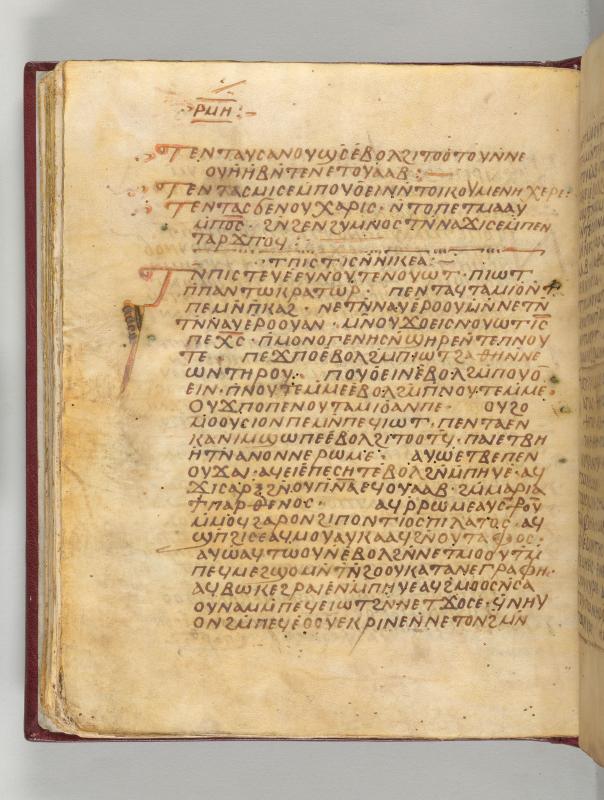 ⲣⲙⲏ:–
ⲧⲉⲛⲧⲁⲩⲥⲁⲛⲟⲩϣⲥ̄ⲉⲃⲟⲗϩⲓⲧⲟⲟⲧⲟⲩⲛ̄ⲛⲉ
ⲟⲩⲏⲏⲃⲛ̄ⲧⲉⲛⲉⲧⲟⲩⲁⲁⲃ:–
ⲧⲉⲛⲧⲁⲥⲙⲓⲥⲉⲙⲡⲟⲩⲟ̄ⲉⲓⲛⲛ̄ⲧⲟⲓⲕⲟⲩⲙⲉⲛⲏⲭⲉⲣⲉ:
ⲧⲉⲛⲧⲁⲥϭⲉⲛⲟⲩⲭⲁⲣⲓⲥ· ⲛ̄ⲧⲟⲡⲉⲧⲙⲁⲁⲩ
ⲙ̄ⲡⲟ̄ⲥ̄· ϩⲛ̄ϩⲉⲛϩⲩⲙⲛⲟⲥ ⲧⲛ̄ⲛⲁϫⲓⲥⲉⲙⲡⲉⲛ
ⲧⲁⲣϫⲡⲟϥ:
ⲧⲡⲓⲥⲧⲓⲥⲛ̄ⲛⲓⲕⲉⲁ:–
ⲧⲛ̄ⲡⲓⲥⲧⲉⲩⲉⲉⲩⲛⲟⲩⲧⲉⲛⲟⲩⲱⲧ· ⲡⲓⲱⲧ
ⲡ̄ⲡⲁⲛⲧⲱⲕⲣⲁⲧⲱⲣ· ⲡⲉⲛⲧⲁϥⲧⲁⲙⲓⲟ̄ⲛ̄ⲧ
ⲡⲉⲙⲛ̄ⲡⲕⲁϩ· ⲛⲉⲧⲛ̄ⲛⲁⲩⲉⲣⲟⲟⲩⲙ̄ⲛ̄ⲛⲉⲧⲛ̄
ⲧⲛ̄ⲛⲁⲩⲉⲣⲟⲟⲩⲁⲛ· ⲙⲛⲟⲩϫⲟⲉⲓⲥⲛⲟⲩⲱⲧⲓ̄ⲥ̄
ⲡⲉⲭ̄ⲥ̄· ⲡ̄ⲙⲟⲛⲟⲅⲉⲛⲏⲥⲛ̄ϣⲏⲣⲉⲛ̄ⲧⲉⲡⲛⲟⲩ
ⲧⲉ· ⲡⲉϫⲡⲟⲉⲃⲟⲗϩⲙ̄ⲡⲓⲱⲧϩⲁⲑⲏⲛ̄ⲛⲉ
ⲱⲛⲧⲏⲣⲟⲩ· ⲡⲟⲩⲟ̄ⲉⲓⲛⲉ̄ⲃⲟⲗϩⲙ̄ⲡⲟⲩⲟ̄
ⲉⲓⲛ· ⲡ̄ⲛⲟⲩⲧⲉⲙⲙⲉⲉ̄ⲃⲟⲗϩⲙ̄ⲡⲛⲟⲩⲧⲉⲙⲙⲉ·
ⲟⲩϫⲡⲟⲡⲉⲛⲟⲩⲧⲁⲙⲓⲟ̄ⲁⲛⲡⲉ· ⲟⲩϩⲟ
ⲙⲟⲟⲩⲥⲓⲟⲛⲡⲉⲙⲛ̄ⲡⲉϥⲓⲱⲧ· ⲡⲉⲛⲧⲁⲉⲛ
ⲕⲁⲛⲓⲙϣⲱⲡⲉⲉ̄ⲃⲟⲗϩⲓⲧⲟⲟⲧϥ̄· ⲡⲁⲓⲉⲧⲃⲏ
ⲏⲧⲛ̄ⲁⲛⲟⲛⲛⲉⲣⲱⲙⲉ· ⲁⲩⲱⲉⲧⲃⲉⲡⲉⲛ
ⲟⲩϫⲁⲓ· ⲁϥⲉⲓⲉⲡⲉⲥⲏⲧⲉ̄ⲃⲟⲗϩⲛ̄ⲙ̄ⲡⲏⲩⲉ· ⲁϥ
ϫⲓⲥⲁⲣⲝϩⲛ̄ⲟⲩⲡ̄ⲛ̄ⲁ̄ⲉϥⲟⲩⲁⲁⲃ· ϩⲙ̄ⲙⲁⲣⲓⲁ
ⲧⲡⲁⲣⲑⲉⲛⲟⲥ· ⲁϥⲣ̄ⲣⲱⲙⲉⲁⲩⲥ⳨ⲟⲩ
ⲙ̄ⲙⲟϥϩⲁⲣⲟⲛϩⲓⲡⲟⲛⲧⲓⲟⲥⲡⲓⲗⲁⲧⲟⲥ· ⲁϥ
ϣⲡ̄ϩⲓⲥⲉⲁϥⲙⲟⲩⲁⲩⲕⲁⲁϥϩⲛ̄ⲟⲩⲧⲁⲫⲟⲥ·
ⲁⲩⲱⲁϥⲧⲱⲟⲩⲛⲉ̄ⲃⲟⲗϩⲛ̄ⲛⲉⲧⲙⲟⲟⲩⲧϩⲙ̄
ⲡⲉϥⲙⲉϩϣⲟⲙⲛ̄ⲧⲛ̄ϩⲟⲟⲩⲕⲁⲧⲁⲛⲉⲅⲣⲁⲫⲏ·
ⲁϥⲃⲱⲕⲉϩⲣⲁⲓⲉⲛⲙ̄ⲡⲏⲩⲉⲁϥϩⲙⲟⲟⲥⲛ̄ⲥⲁ
ⲟⲩⲛⲁⲙⲙ̄ⲡⲉϥⲉⲓⲱⲧϩⲛ̄ⲛⲉⲧϫⲟⲥⲉ· ϥⲛ̄ⲏⲩ
ⲟⲛϩⲙ̄ⲡⲉϥⲉ̄ⲟⲟⲩⲉⲕⲣⲓⲛⲉⲛ̄ⲛⲉⲧⲟⲛϩⲙⲛ